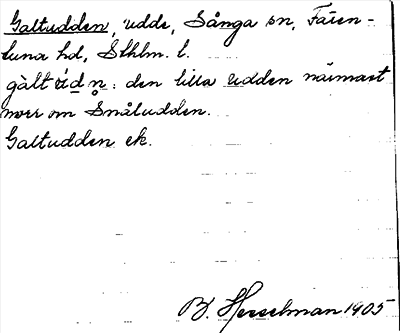 Galtudden, udde, Sånga sn, Fären-
tuna hd, Sthlm. l.
gàlt údn̥: den lilla udden närmast
norr om Småludden.
Galtudden ek.
B. Hesselman 1905